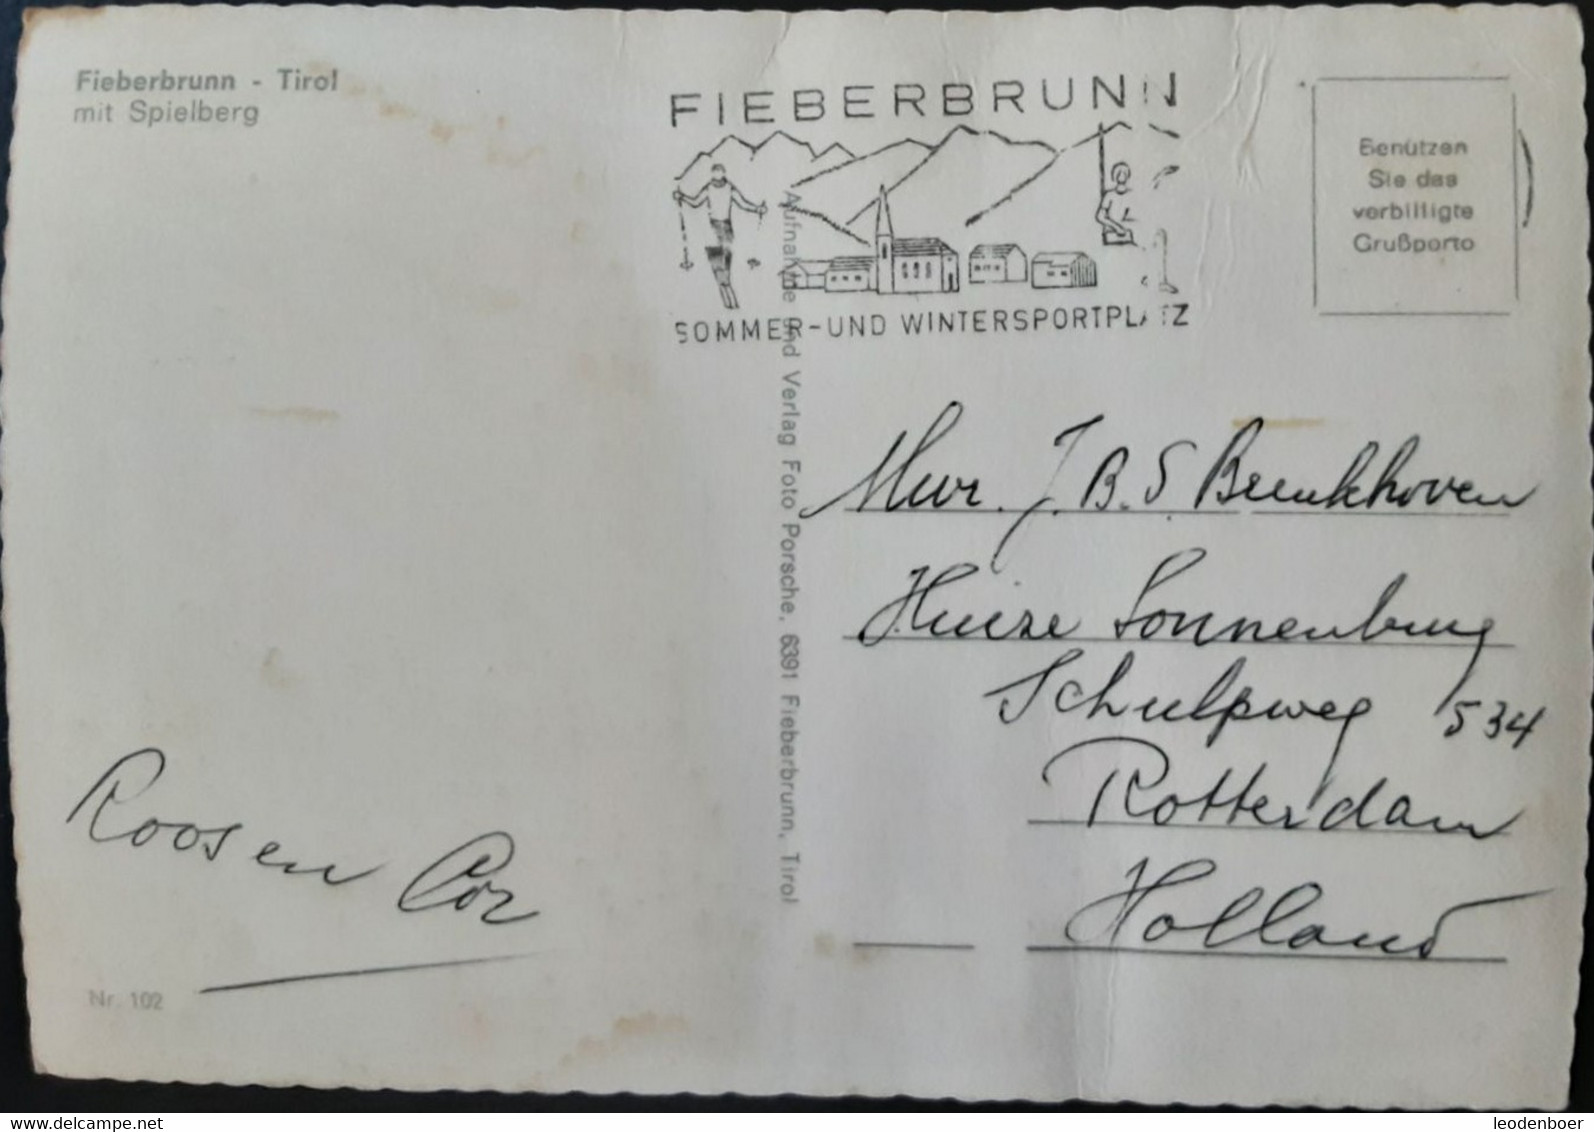 Fieberbrunn - Tirol
mit Spielberg
FIEBERBRUNN
SOMMER-UND WINTERSPORTPLATZ
Benützen
Sie das
verbilligte
Grußporto
Aufnahme und Verlag Foto Porsche, 6391 Fieberbrunn, Tirol
Mevr. J. B. S. Beukhoven
Huize Sonnenburg
Schulpweg 534
Rotterdam
Holland
Roos en Cor
Nr. 102
delcampe.net
leodenboer